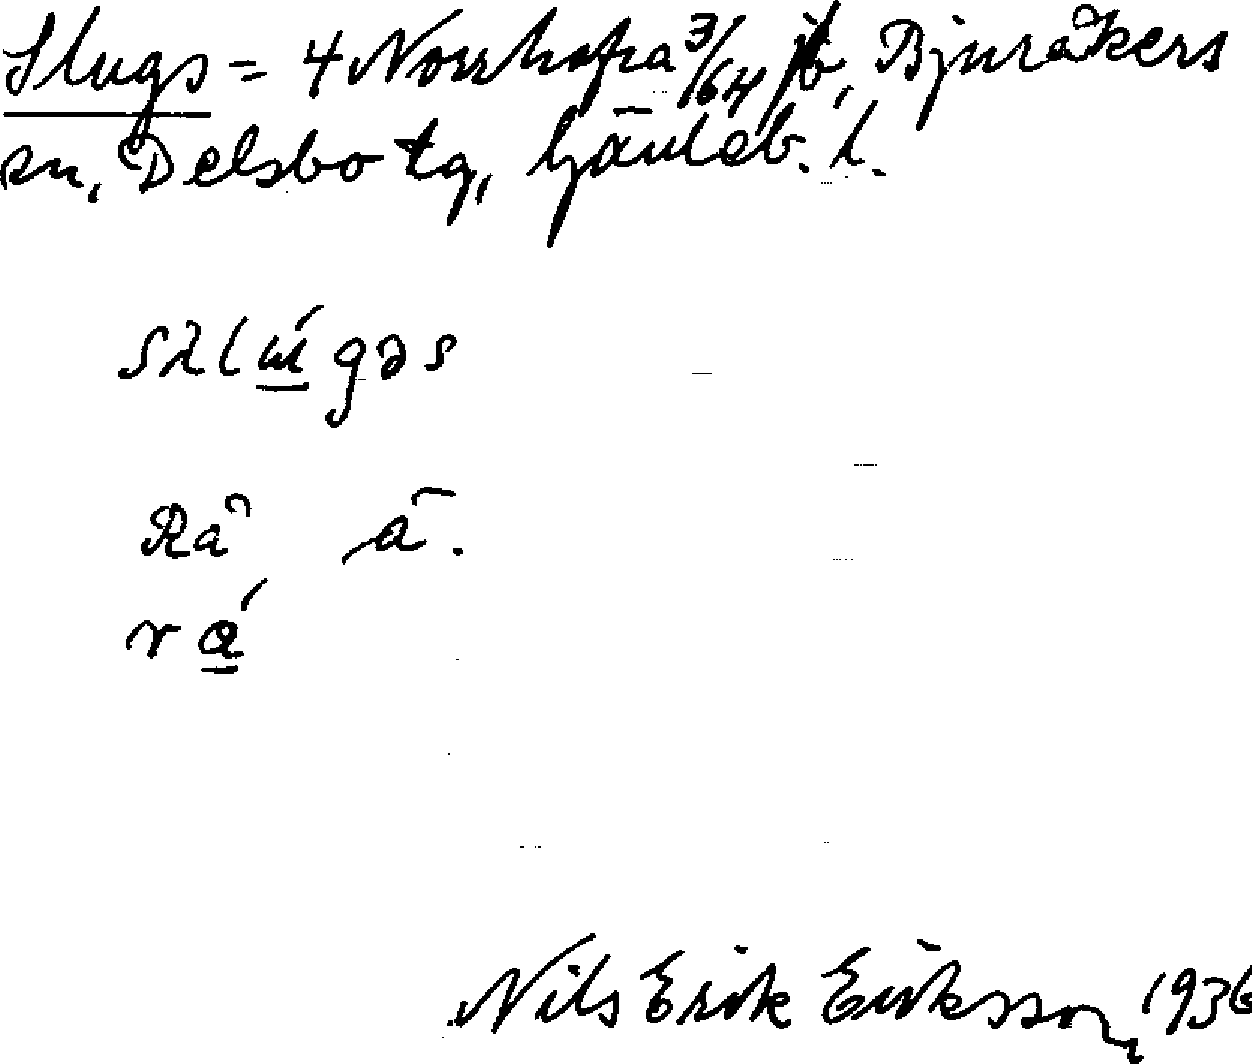 Slugs = 4 Norrhafra 3/64 jb, Bjuråkers
sn, Delsbo tg, Gävleb. l.
slú̲gəs
Rå ä.
rǻ̲
Nils Erik Eriksson, 1936